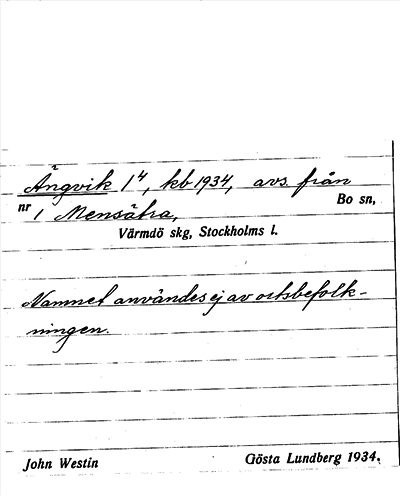 Ängvik 1⁴, kb 1934, avs. från
nr 1 Mensätra, Bo sn,
Värmdö skg, Stockholms l.
Namnet användes ej av ortsbefolk-
ningen.
John Westin Gösta Lundberg 1934.